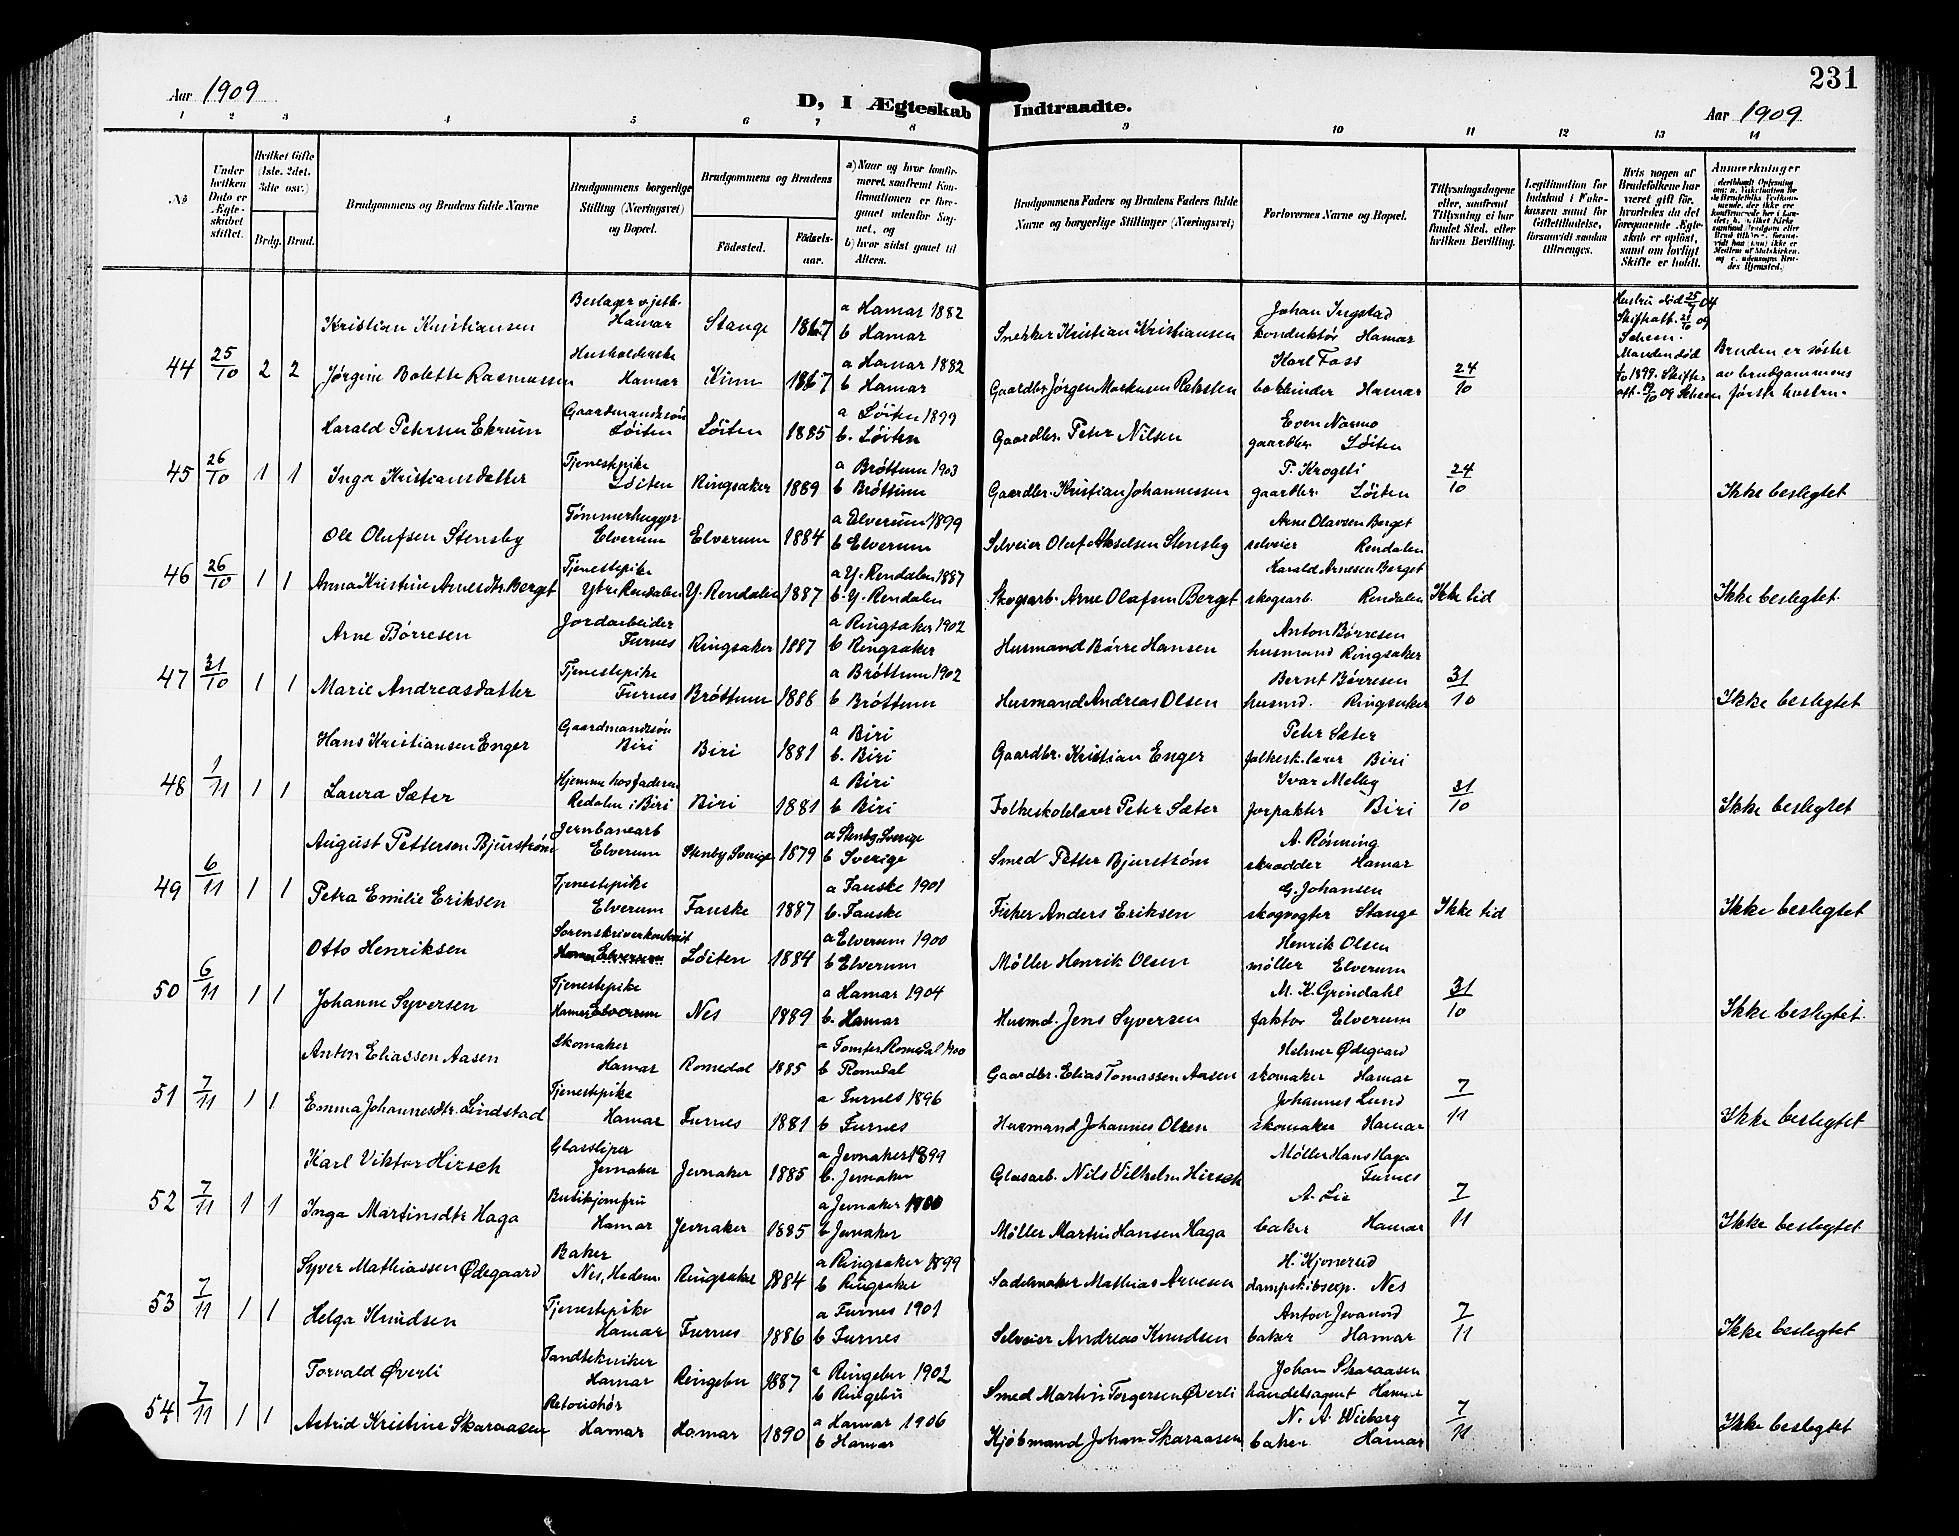 231
Aar 1909
D, I Ægteskab Indtraadte.
Aar 1909
1 2 3 4 5 6 7 8 9 10 11 12 13 14
No
Under hvilken Dato er Ægteskabet stiftet.
Hvilket Gifte (1ste, 2det, 3die osv.)
Brdg. Brud.
Brudgommens og Brudens fulde Navne
Brudgommens borgerlige Stilling (Næringsvei) og Bopæl.
Brudgommens og Brudens
Födested. Födsels-aar.
a) Naar og hvor konfirmeret, samfremt Konfirmationen er foregaaet udenfor Sognet, og
b) hvor sidst gaaet til Alters.
Brudgommens Faders og Brudens Faders fulde Navne og borgerlige Stillinger (Næringsvei)
Forlovernes Navne og Bopæl.
Tillysningsdagene eller, samfremt Tillysning ei har fundet Sted, efter hvilken Bevilling.
Legitimation for Indskud i Fakekassen samt for Giftetilladelse, forsaavidt saadan tiltrænges.
Hvis nogen af Brudefolkene har været gift før, hvorledes da det foregaaende Ægteskab er opløst, samt om lovligt Skifte er holdt.
Anmerkninger
44 25/10 2 2
Kristian Kristiansen
Beslager v. jetb. Hamar Stange 1867
a Hamar 1882
b Hamar
Snekker Kristian Kristiansen
Johan Ingstad
konduktør Hamar
Hustru død 25/7 04
Skifteatt. 21/10 09
Scheen.
Jørgine Bolette Rasmussen
Husholderske Hamar Kinn 1867
a Hamar 1882
b Hamar
Gaardbr. Jørgen Markusen Reksten
Karl Foss
bokbinder Hamar
24/10
Manden død
1899. Skifte-
att. 19/10 09 Scheen
Bruden er søster
av brudgommens
første hustru.
45 26/10 1 1
Harald Petersen Ekrum
Gaardmandssøn Løiten Løiten 1885
a Løiten 1899
b. Løiten
Gaardbr. Peter Nilsen
Even Narmo
gaardbr. Løiten
Inga Kristiansdatter
Tjenestepike Løiten Ringsaker 1889
a Brøttum 1903
b Brøttum
Gaardbr. Kristian Johannessen
P. Krogsti
gaardbr. Løiten
24/10
Ikke beslegtet
46 26/10 1 1
Ole Olufsen Stensby
Tømmerhugger Elverum Elverum 1884
a Elverum 1899
b Elverum
Selveier Oluf Akselsen Stensby
Arne Olavsen Berget
selveier Rendalen
Anna Kristine Arnesdtr. Berget
Tjenestepike Ytre Rendalen Y. Rendalen 1887
a Y. Rendalen 1887
b. Y. Rendalen
Skogsarb. Arne Olafsen Berget
Harald Arnesen Berget
skogsarb. Rendalen
Ikke tid
Ikke beslegtet.
47 31/10 1 1
Arne Børresen
Jordarbeider Furnes Ringsaker 1887
a Ringsaker 1902
b Ringsaker
Husmand Børre Hansen
Anton Børresen
husmand Ringsaker
Marie Andreasdatter
Tjenestepike Furnes Brøttum 1886
a Brøttum 1902
b Brøttum
Husmand Andreas Olsen
Bernt Børresen
husmd. Ringsaker
31/10
Ikke beslegtet
48 1/11 1 1
Hans Kristiansen Enger
Gaardmandssøn Biri Biri 1881
a Biri
b. Biri
Gaardbr. Kristian Enger
Peter Sæter
folkesk.lærer Biri
Laura Sæter
Hjemme hos faderen Redalen i Biri Biri 1881
a Biri
b Biri
Folkeskolelærer Peter Sæter
Ivar Melby
forpakter Biri
31/10
Ikke beslegtet
49 6/11 1 1
August Petterson Bjurstrøm
Jernbanearb Elverum Stenby Sverige 1879
a Stenby Sverige
b Sverige
Smed Petter Bjurstrøm
A. Rønning
skrædder Hamar
Petra Emilie Eriksen
Tjenestepike Elverum Fauske 1887
a Fauske 1901
b. Fauske
Fisker Anders Eriksen
G. Johansen
skogvogter Stange
Ikke tid
Ikke beslegtet
50 6/11 1 1
Otto Henriksen
Sorenskriverkontorist Elverum Løiten 1884
a Elverum 1900
b Elverum
Møller Henrik Olsen
Henrik Olsen
møller Elverum
Johanne Syversen
Tjenestepike Hamar Elverum Nes 1889
a Hamar 1904
b. Hamar
Husmd. Jens Syversen
M. K. Grindahl
faktor Elverum
31/10
Ikke beslegtet.
51 7/11 1 1
Anton Eliassen Aasen
Skomaker Hamar Romedal 1885
a Tomter Romedal 1900
b Romedal
Gaardbr. Elias Tomassen Aasen
Helmer Ødegaard
skomaker Hamar
Emma Johannesdtr. Lindstad
Tjenestepike Hamar Furnes 1881
a Furnes 1896
b Furnes
Husmand Johannes Olsen
Johannes Lund
skomaker Hamar
7/11
Ikke beslegtet
52 7/11 1 1
Karl Viktor Hirsch
Glassliper Jevnaker Jevnaker 1885
a Jevnaker 1899
b. Jevnaker
Glasarb. Nils Vilhelm Hirsch
Møller Hans Haga
Furnes
Inga Martinsdtr Haga
Butikjomfru Hamar Jevnaker 1885
a Jevnaker 1900
b Jevnaker
Møller Martin Hansen Haga
A. Lie
baker Hamar
7/11
Ikke beslegtet
53 7/11 1 1
Syver Mathiassen Ødegaard
Baker Nes, Hedem. Ringsaker 1884
a Ringsaker 1899
b Ringsaker
Sadelmaker Mathias Arnesen
H. Kjonerud
dampskibsexp. Nes
Helga Knudsen
Tjenestepike Hamar Furnes 1886
a Furnes 1901
b Furnes
Selveier Andreas Knudsen
Anton Jevanord
baker Hamar
7/11
Ikke beslegtet
54 7/11 1 1
Torvald Øverli
Tandtekniker Hamar Ringebu 1887
a Ringebu 1902
b Ringebu
Smed Martin Torgersen Øverli
Johan Skaraasen
handelsagent Hamar
Astrid Kristine Skaraasen
Retouchør Hamar Hamar 1890
a Hamar 1906
b Hamar
Kjøbmand Johan Skaraasen
N. A. Wiberg
baker Hamar
7/11
Ikke beslegtet